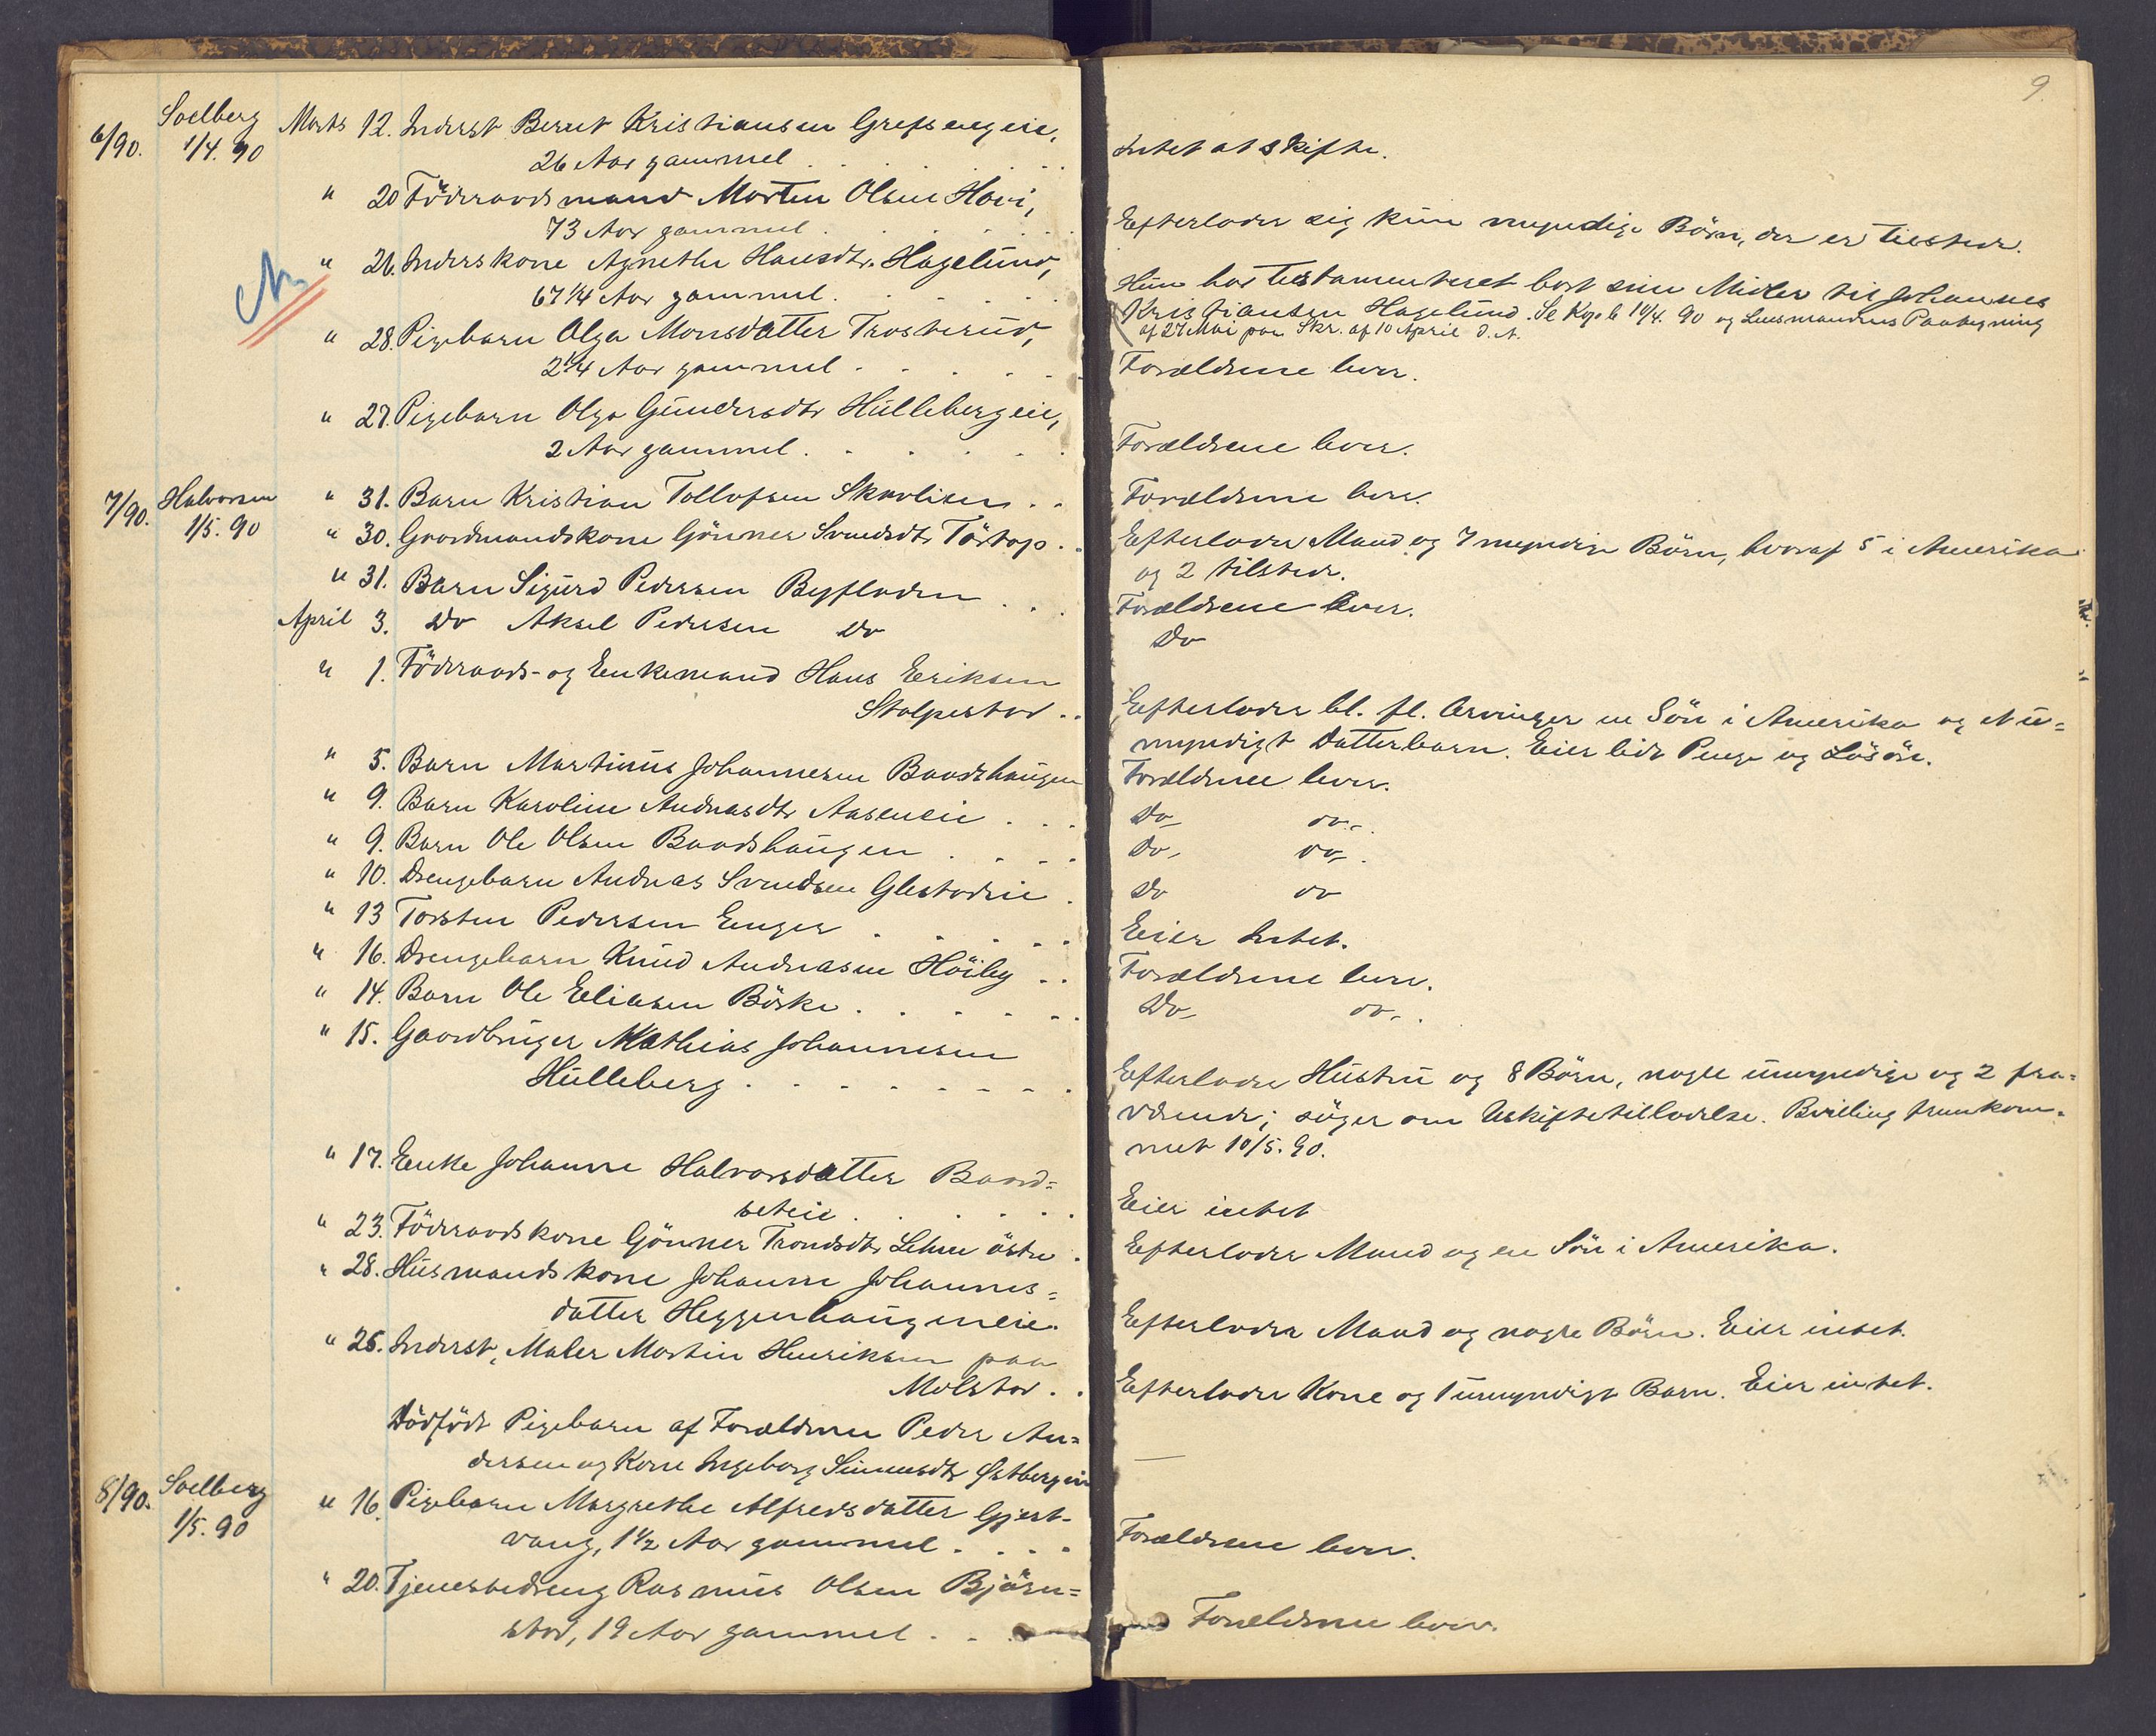 9.
6/90. Soelberg 1/4. 90 Marts 12. Inderst Bernt Kristiansen Grefsengeie,
26 Aar gammel . . . . . . Intet at skifte.
" 20 Föderaadsmand Morten Olsen Hovi,
73 Aar gammel . . . . . . Efterlader sig kun myndige Börn, der er tilstede.
" 26. Inderskone Agnethe Hansdtr. Hagelund,
67 1/4 Aar gammel . . . . . Hun har testamenteret bort sine Midler til Johannes
Kristiansen Hagelund. Se Kopb. 14/4. 90 og Lensmandens Paategning
af 27 Mai paa Skr. af 10 April d. A.
" 28. Pigebarn Olga Monsdatter Trosterud,
2 1/4 Aar gammel . . . . . . Forældrene lever.
" 27. Pigebarn Olga Gundersdtr Hullebergeie,
2 Aar gammel . . . . . . Forældrene lever.
7/90. Halvorsen 1/5. 90 " 31. Barn Kristian Tollofsen Skavlisen . . Forældrene lever.
" 30. Gaardmandskone Gönner Svendsdtr Törtop . . Efterlader Mand og 7 myndige Börn, hvoraf 5 i Amerika
og 2 tilstede.
" 31. Barn Sigurd Pedersen Byfladen . . . Forældrene lever.
April 3. Do Aksel Pedersen Do Do
" 1. Föderaads- og Enkemand Hans Eriksen
Stalpestad . . Efterlader bl. fl. Arvinger en Sön i Amerika og et u=
myndigt Datterbarn. Eier lidt Penge og Lösöre.
" 5. Barn Martinus Johannesen Baadshaugen Forældrene lever.
" 9. Barn Karoline Andreasdtr Aaseneie . . . Do, do,.
" 9. Barn Ole Olsen Baadshaugen . . . . Do, do,.
" 10. Drengebarn Andreas Svendsen Glestadeie . Do do
" 13 Torsten Pedersen Enger . . . . . Eier Intet.
" 16. Drengebarn Knud Andreasen Höiby . . Forældrene lever.
" 14. Barn Ole Eliasen Börke . . . . . . Do, do,.
" 15. Gaardbruger Mathias Johannesen
Hulleberg . . . . . . . . Efterlader Hustru og 8 Börn, nogle umyndige og 2 fra=
værende; söger om Uskiftetilladelse. Bevilling fremkom=
met 10/5. 90.
" 17. Enke Johanne Halvorsdatter Baard=
seteie . . . . . . Eier intet
" 23. Föderaadskone Gönner Trondsdtr Lehne östre . Efterlader Mand og en Sön i Amerika.
" 28. Husmandskone Johanne Johannes=
datter Heggenhaugeneie. Efterlader Mand og nogle Börn. Eier intet.
" 25. Inderst, Maler Martin Henriksen paa
Melstad . . Efterlader Kone og 1 umyndigt Barn. Eier intet.
Dödfödt Pigebarn af Forældrene Peder An=
dersen og Kone Ingeborg Simensdtr Östbergeie —
8/90. Soelberg 1/5. 90 " 16. Pigebarn Margrethe Alfredsdatter Gjest=
vang, 1 1/2 Aar gammel . . . . Forældrene lever.
" 20. Tjenestedreng Rasmus Olsen Björn=
stad, 19 Aar gammel . . . Forældrene lever.